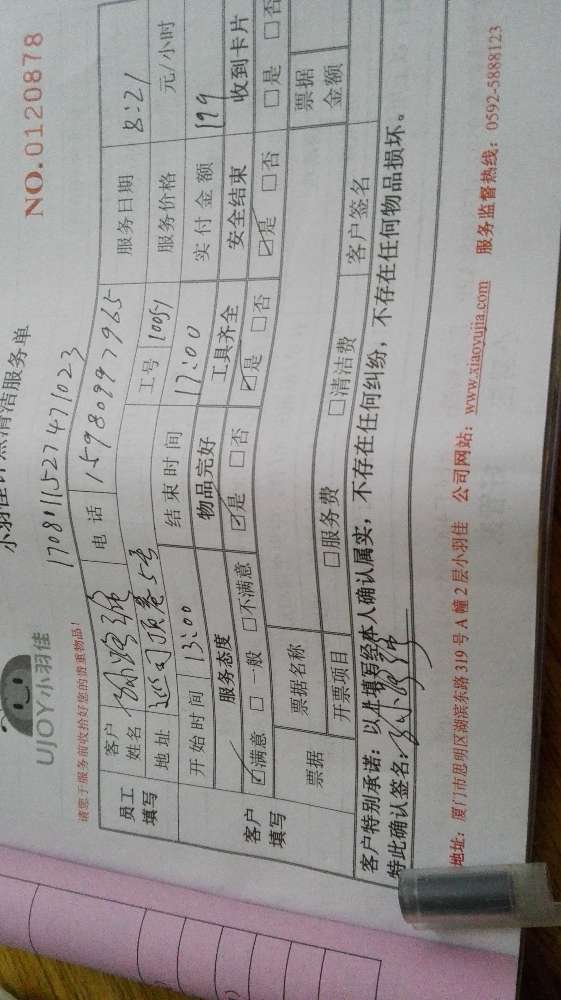 小羽佳计点清洁服务单
NO.0120878
UJOY小羽佳
1708111527471023
请您于服务前收拾好您的贵重物品！
员工填写 客户姓名 电话 15980997965 服务日期 8:21
地址 巡司顶巷5号 工号 10057 服务价格 元/小时
开始时间 13:00 结束时间 17:00 实付金额 199
客户填写 服务态度 物品完好 工具齐全 安全结束 收到卡片
☑满意 □一般 □不满意 ☑是 □否 ☑是 □否 ☑是 □否 □是 □否
票据 票据名称 票据金额
开票项目 □服务费 □清洁费 客户签名
客户特别承诺：以上填写经本人确认属实，不存在任何纠纷，不存在任何物品损坏。
特此确认签名：
地址：厦门市思明区湖滨东路319号A幢2层小羽佳 公司网站：www.xiaoyujia.com 服务监督热线：0592-5888123